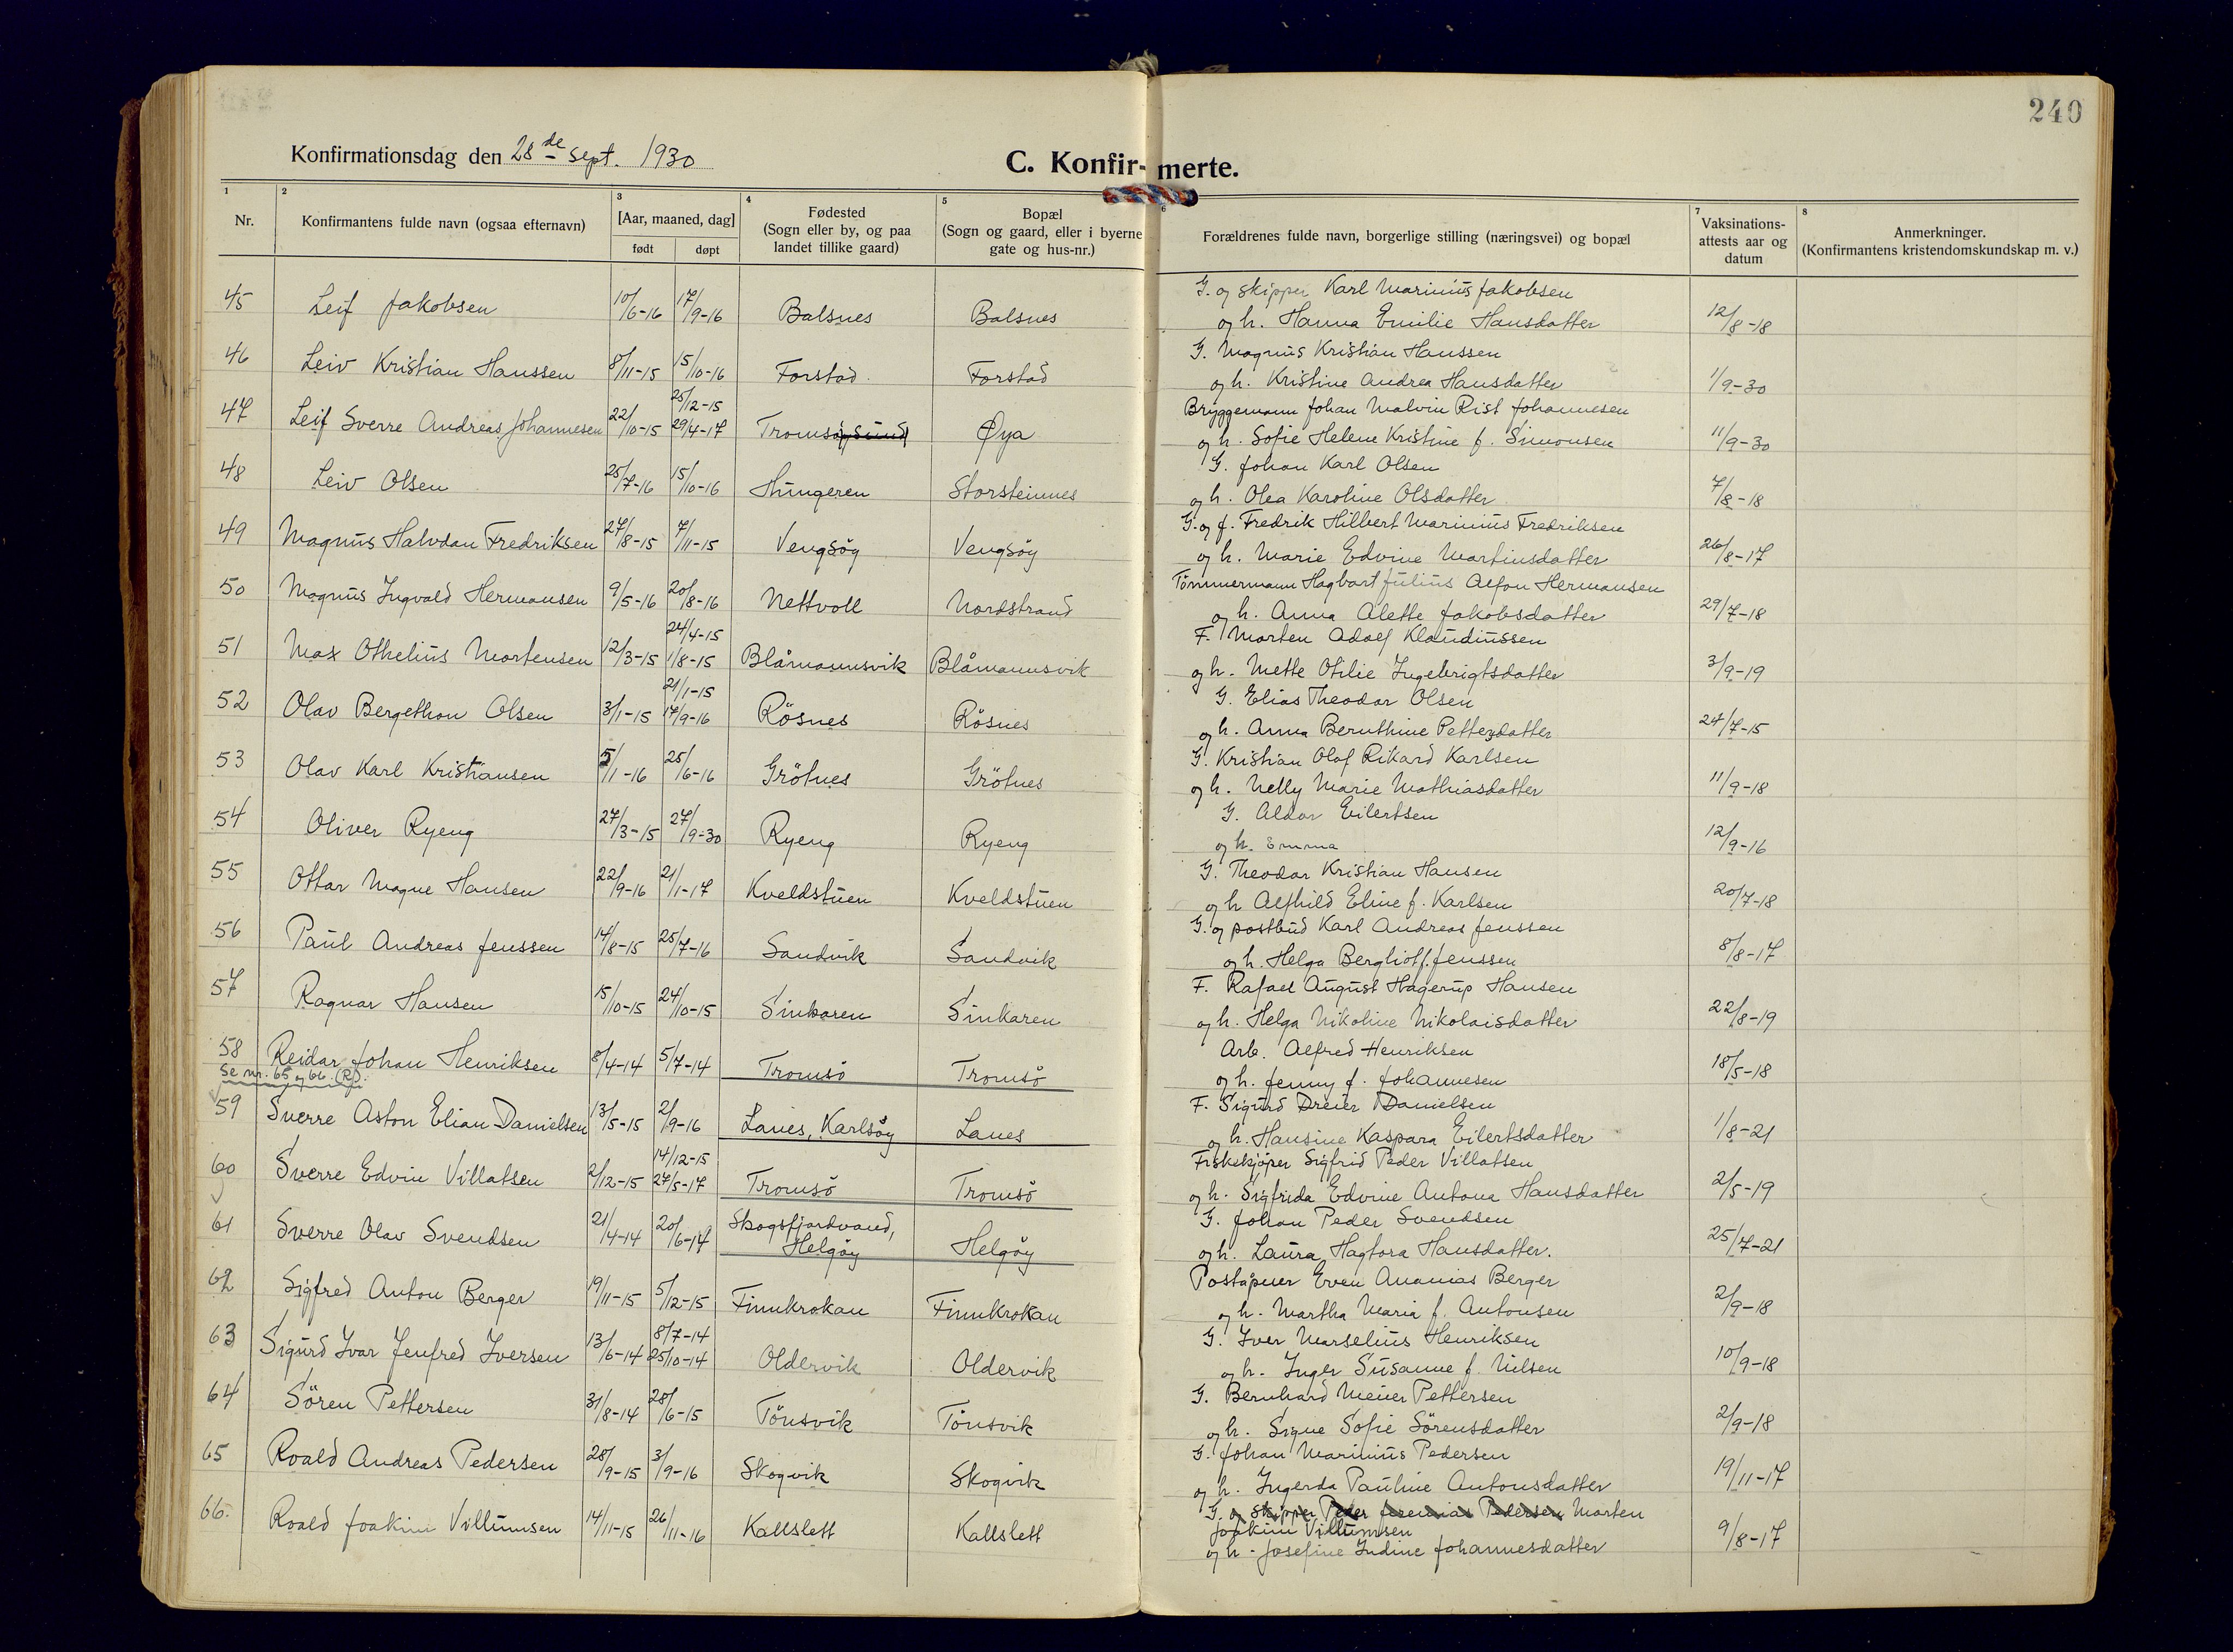 240
Konfirmationsdag den 28de Sept. 1930
C. Konfir-merte.
1 Nr.
2 Konfirmantens fulde navn (ogsaa efternavn)
3 [Aar, maaned, dag] født døpt
4 Fødested (Sogn eller by, og paa landet tillike gaard)
5 Bopæl (Sogn og gaard, eller i byerne gate og hus-nr.)
6 Forældrenes fulde navn, borgerlige stilling (næringsvei) og bopæl
7 Vaksinations-attests aar og datum
8 Anmerkninger. (Konfirmantens kristendomskundskap m. v.)
45 Leif Jakobsen 10/6-16 17/9-16 Balsnes Balsnes G. og skipper Karl Marinius Jakobsen
og h. Hanna Emilie Hansdatter 12/8-18
46 Leiv Kristian Hanssen 8/11-15 15/10-16 Forstad Forstad G. Magnus Kristian Hanssen
og h. Kristine Andrea Hansdatter 1/9-30
47 Leif Sverre Andreas Johannesen 22/10-15 25/12-15 29/4-17 Tromsøysund Øya Bryggemann Johan Malvin Rist Johannesen
og h. Sofie Helene Kristine f. Simonsen 11/9-30
48 Leiv Olsen 25/7-16 15/10-16 Hungeren Storsteinnes G. Johan Karl Olsen
og h. Olea Karoline Olsdatter 7/8-18
49 Magnus Halvdan Fredriksen 27/8-15 7/11-15 Vengsöy Vengsöy G. og f. Fredrik Hilbert Marinius Fredriksen
og h. Marie Edvine Martinsdatter 26/8-17
50 Magnus Ingvald Hermansen 9/5-16 20/8-16 Nettvoll Nordstrand Tömmermann Hagbart Julius Alfon Hermansen
og h. Anna Alette Jakobsdatter 29/7-18
51 Max Othelius Mortensen 12/3-15 24/4-15 1/8-15 Blåmannsvik Blåmannsvik F. Morten Adolf Klaudiussen
og h. Mette Otilie Ingebrigtsdatter 3/9-19
52 Olav Bergethon Olsen 3/1-15 21/1-15 17/9-16 Rösnes Rösnes G. Elias Theodor Olsen
og h. Anna Bernthine Pettersdatter 24/7-15
53 Olav Karl Kristiansen 5/1-16 25/6-16 Grötnes Grötnes G. Kristian Olaf Rikard Karlsen
og h. Nelly Marie Mathiasdatter 11/9-18
54 Oliver Ryeng 27/3-15 27/9-30 Ryeng Ryeng G. Aldor Eilertsen
og h. Emma 12/9-16
55 Ottar Magne Hansen 22/9-16 21/1-17 Kveldstuen Kveldstuen G. Theodor Kristian Hansen
og h Alfhild Eline f. Karlsen 20/7-18
56 Paul Andreas Jenssen 14/8-15 25/7-16 Sandvik Sandvik G. og postbud Karl Andreas Jenssen
og h. Helga Bergliot f. Jenssen 8/8-17
57 Ragnar Hansen 15/10-15 24/10-15 Sinkaren Sinkaren F. Rafael August Hagerup Hansen
og h. Helga Nikoline Nikolaisdatter 22/8-19
58 Reidar Johan Henriksen 8/4-14 5/7-14 Tromsö Tromsö Arb. Alfred Henriksen
Se nr. 65 og 66. (R).
og h. Jenny f. Johannesen 18/5-18
59 Sverre Aston Elian Danielsen 13/5-15 2/9-16 Lanes, Karlsöy Lanes F. Sigurd Dreier Danielsen
og h. Hansine Kaspara Eilertsdatter 1/8-21
60 Sverre Edvin Villatsen 2/12-15 14/12-15 27/5-17 Tromsö Tromsö Fiskekjöper Sigfrid Peder Villatsen
og h. Sigfrida Edvine Antona Hansdatter 2/5-19
61 Sverre Olav Svendsen 21/4-14 20/6-14 Skogsfjordvand, Helgöy Helgöy G. Johan Peder Svendsen
og h. Laura Hagtora Hansdatter. 25/7-21
62 Sigfred Anton Berger 19/11-15 5/12-15 Finnkrokan Finnkrokan Poståpner Even Ananias Berger
og h. Martha Maria f. Antonsen 2/9-18
63 Sigurd Ivar Jenfred Iversen 13/6-14 8/7-14 25/10-14 Oldervik Oldervik G. Iver Marselius Henriksen
og h. Inger Susanne f. Nilsen 10/9-18
64 Sören Pettersen 31/8-14 28/6-15 Tönsvik Tönsvik G. Bernhard Meier Pettersen
og h. Signe Sofie Sörensdatter 2/9-18
65 Roald Andreas Pedersen 28/9-15 3/9-16 Skogvik Skogvik G. Johan Marinius Pedersen
og h. Ingerda Pauline Antonsdatter 19/11-17
66. Roald Joakim Villumsen 14/11-15 26/11-16 Kallslett Kallslett G. og skipper Peder Jeremias Pedersen Morten
Joakim Villumsen
og h. Josefine Indine Johannesdatter 9/8-17